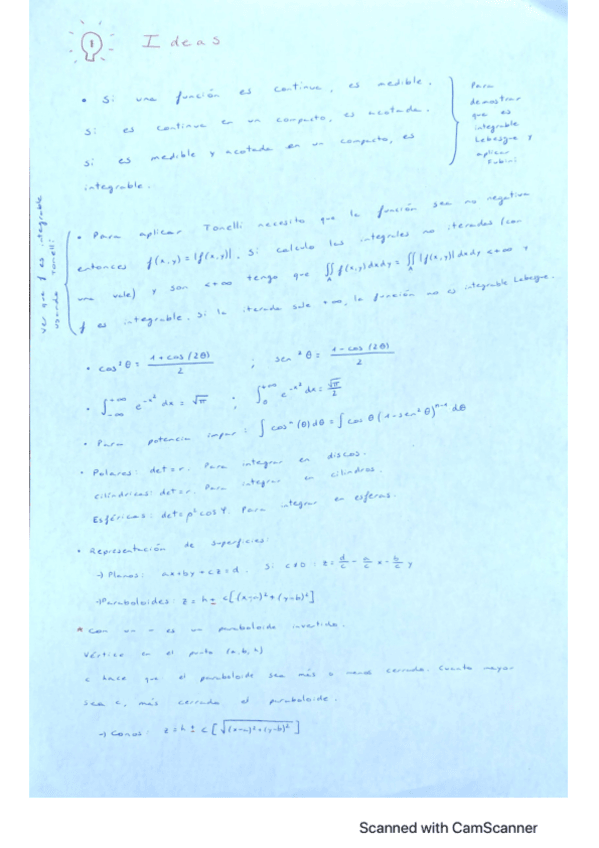 Ideas
• Si una función es continua, es medible.
Si es continua en un compacto, es acotada.
Si es medible y acotada en un compacto, es
integrable.
Para
demostrar
que es
integrable
Lebesgue y
aplicar
Fubini
ver que f es integrable
usando Tonelli
• Para aplicar Tonelli necesito que la función sea no negativa
entonces f(x,y) = |f(x,y)|. Si calculo las integrales no iteradas (con
una vale) y son <+∞ tengo que ∬_A f(x,y)dxdy = ∬_A |f(x,y)|dxdy <+∞ y
f es integrable. Si la iterada sale +∞, la función no es integrable Lebesgue.
• cos²θ = (1+cos(2θ))/2 ; sen²θ = (1-cos(2θ))/2
• ∫_{-∞}^{+∞} e^{-x²} dx = √π ; ∫_0^{+∞} e^{-x²} dx = √π/2
• Para potencia impar: ∫ cosⁿ(θ)dθ = ∫ cosθ (1-sen²θ)^{n-1} dθ
• Polares: det=r. Para integrar en discos.
Cilíndricas: det=r. Para integrar en cilindros.
Esféricas: det=ρ²cosφ. Para integrar en esferas.
• Representación de superficies:
→ Planos: ax+by+cz=d. Si c≠0: z = d/c - a/c x - b/c y
→ Paraboloides: z = h ± c[(x-a)²+(y-b)²]
* Con un - es un paraboloide invertido.
Vértice en el punto (a,b,h)
c hace que el paraboloide sea más o menos cerrado. Cuanto mayor
sea c, más cerrado el paraboloide.
→ Conos: z = h ± c[√((x-a)²+(y-b)²)]
Scanned with CamScanner